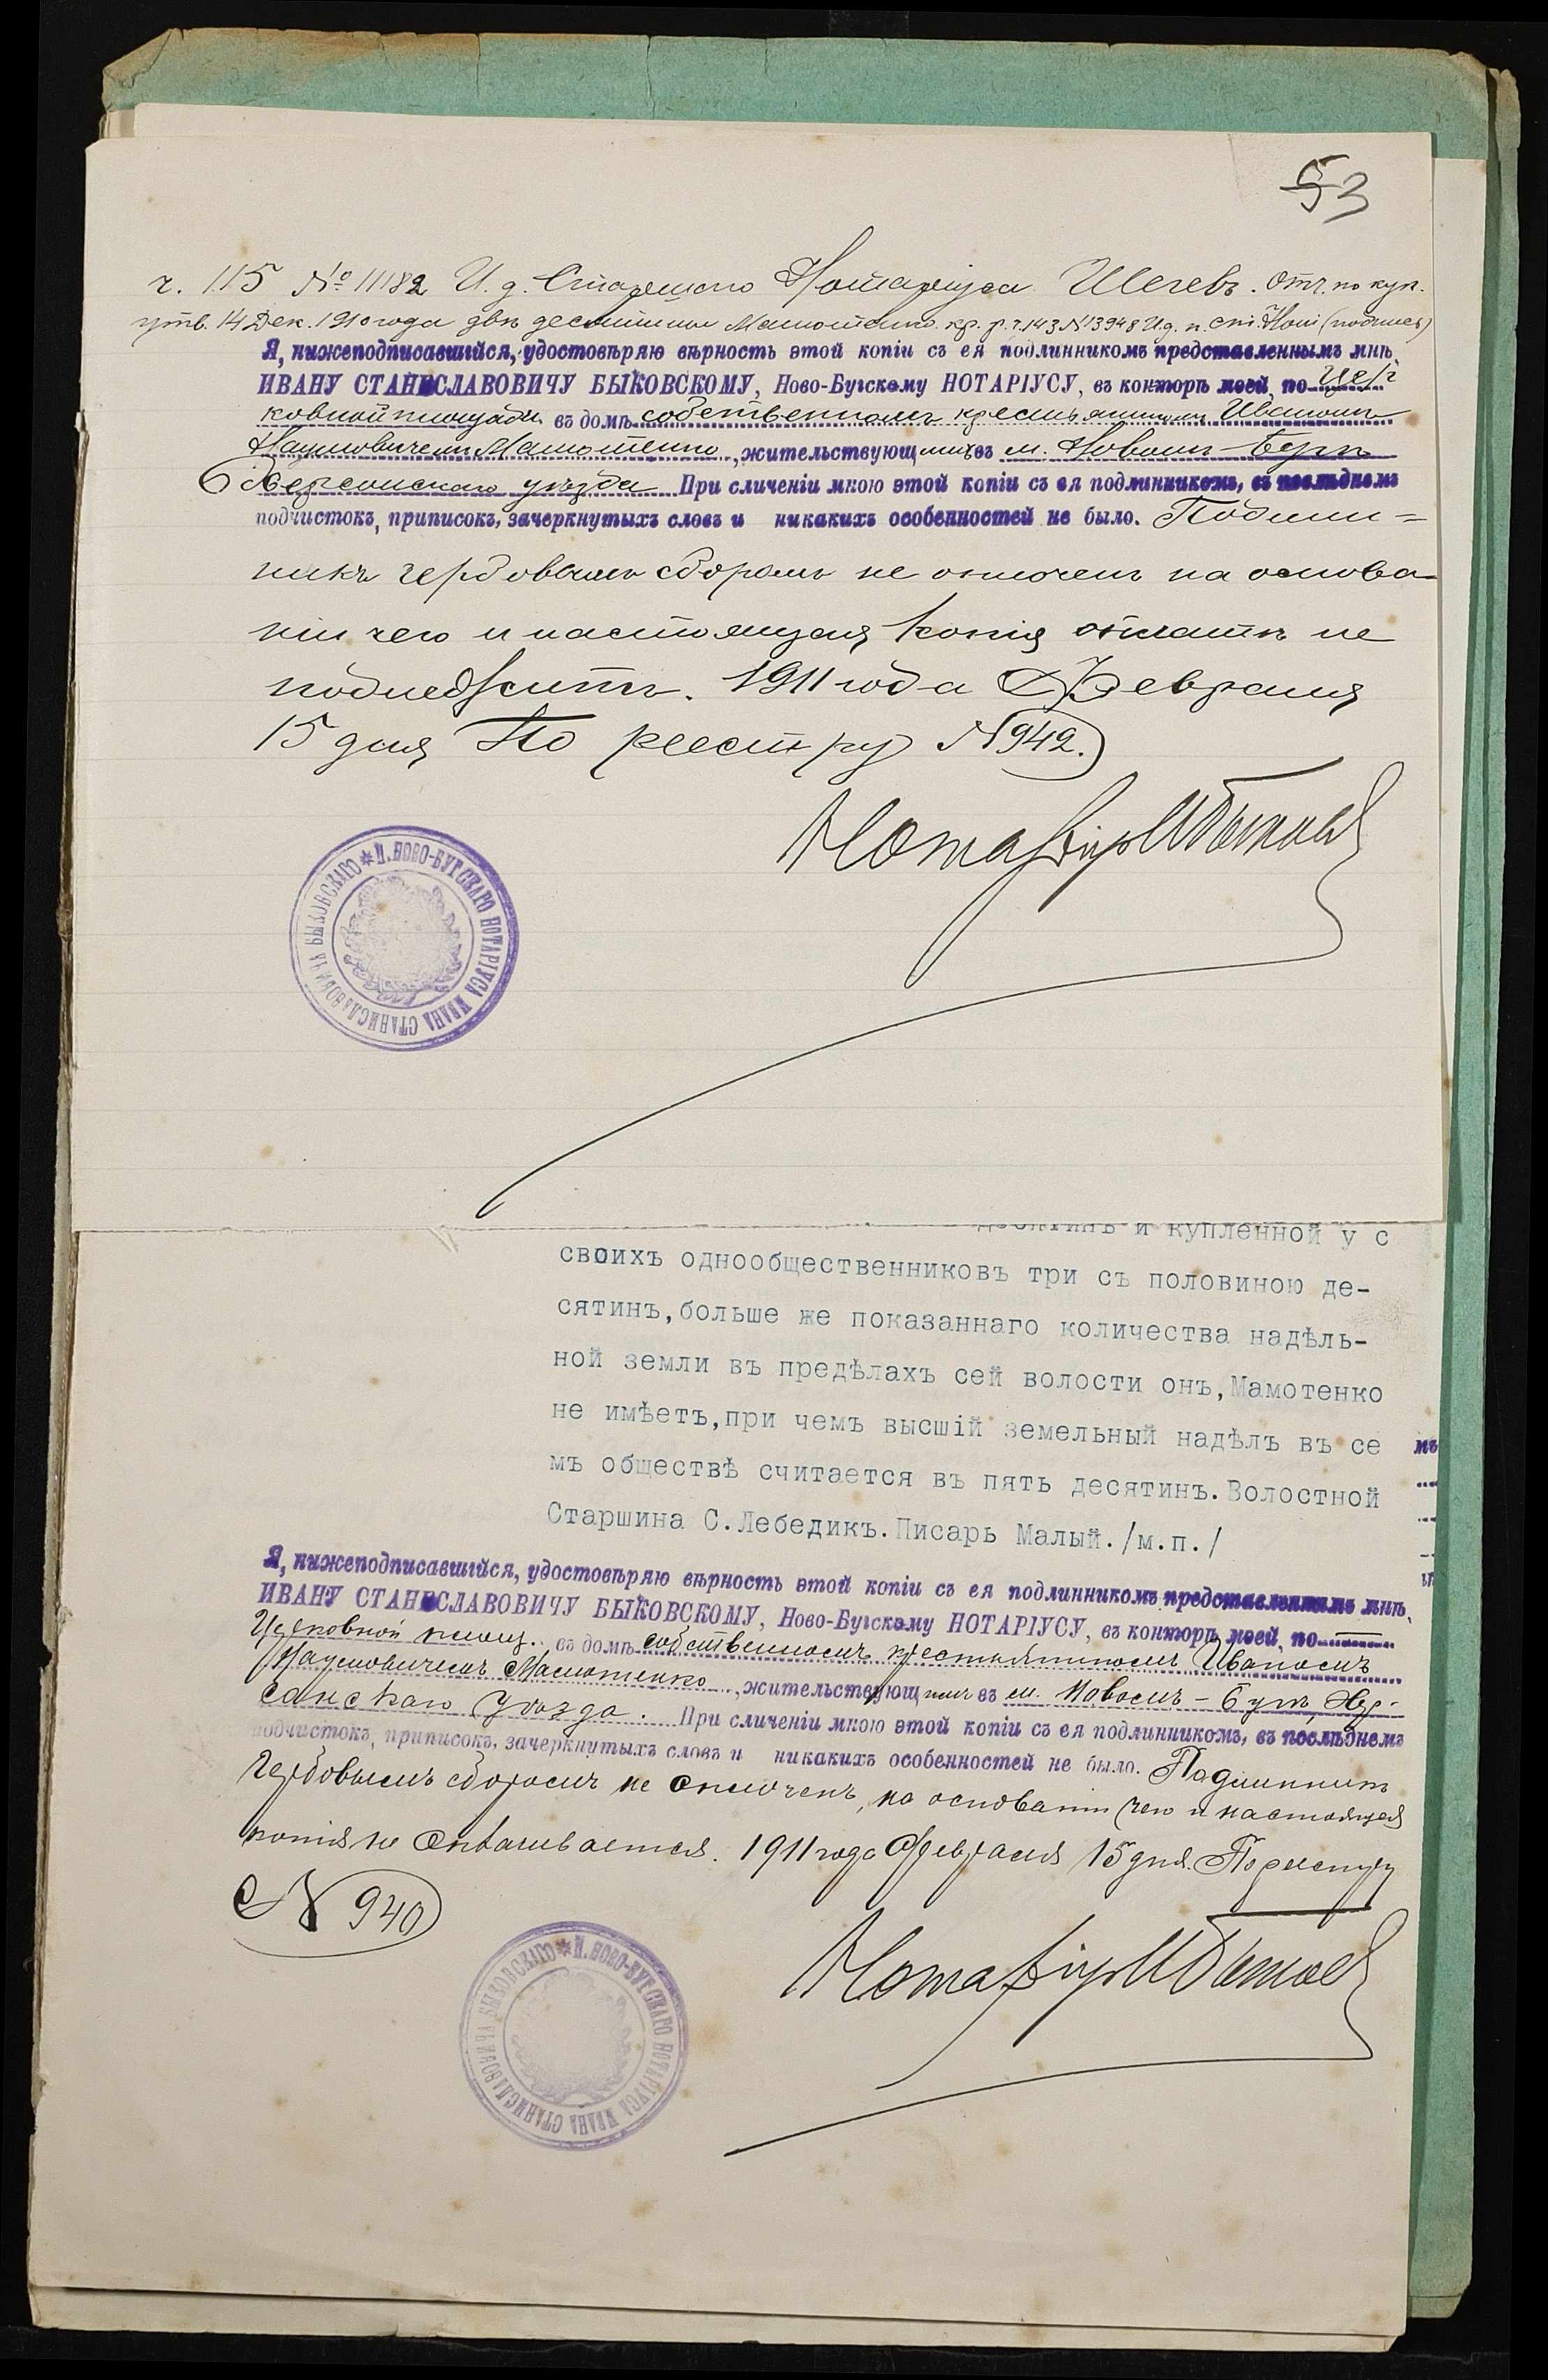 53
ч. 115 № 11182 И. д. Старшаго Нотаріуса Отч. по куп.
утв. 14 Дек. 1910 года двѣ десятины Мамотенко. кр. р. ч. 143 № 13948 И д. (подпись)
Я, нижеподписавшійся, удостовѣряю вѣрность этой копіи съ ея подлинникомъ представленнымъ мнѣ,
ИВАНУ СТАНИСЛАВОВИЧУ БЫКОВСКОМУ, Ново-Бугскому НОТАРІУСУ, въ конторѣ моей, по Цер
ковной площади въ домѣ собственномъ крестьяниномъ Иваномъ
Наумовичемъ Мамотенко, жительствующимъ въ м. Новомъ-Бугѣ
Херсонскаго уѣзда При сличеніи мною этой копіи съ ея подлинникомъ, въ послѣднемъ
подчистокъ, приписокъ, зачеркнутыхъ словъ и никакихъ особенностей не было. Подлин=
никъ гербовымъ сборомъ не оплоченъ на основа-
ніи чего и настоящая копія оплатѣ не
подлежитъ. 1911 года Февраля
15 дня По реестру № 942.
Нотаріусъ И Быковс
* П. НОВО-БУГСКАГО НОТАРІУСА ИВАНА СТАНИСЛАВОВИЧА БЫКОВСКАГО
десятинъ и купленной у с
своихъ однообщественниковъ три съ половиною де-
сятинъ,больше же показаннаго количества надѣль-
ной земли въ предѣлахъ сей волости онъ,Мамотенко
не имѣетъ,при чемъ высшій земельный надѣлъ въ се
мъ обществѣ считается въ пять десятинъ.Волостной
Старшина С.Лебедикъ.Писарь Малый./м.п./
Я, нижеподписавшійся, удостовѣряю вѣрность этой копіи съ ея подлинникомъ представленнымъ мнѣ,
ИВАНУ СТАНИСЛАВОВИЧУ БЫКОВСКОМУ, Ново-Бугскому НОТАРІУСУ, въ конторѣ моей, по
Церковной площ. въ домѣ собственномъ крестьяниномъ Иваномъ
Наумовичемъ Мамотенко, жительствующимъ въ м. Новомъ-Бугѣ, Хер-
сонскаго уѣзда. При сличеніи мною этой копіи съ ея подлинникомъ, въ послѣднемъ
подчистокъ, приписокъ, зачеркнутыхъ словъ и никакихъ особенностей не было. Подлинникъ
гербовымъ сборомъ не оплоченъ, на основаніи чего и настоящая
копія не оплачивается. 1911 года Февраля 15 дня. По реестру
№ 940
Нотаріусъ И Быковс
* П. НОВО-БУГСКАГО НОТАРІУСА ИВАНА СТАНИСЛАВОВИЧА БЫКОВСКАГО